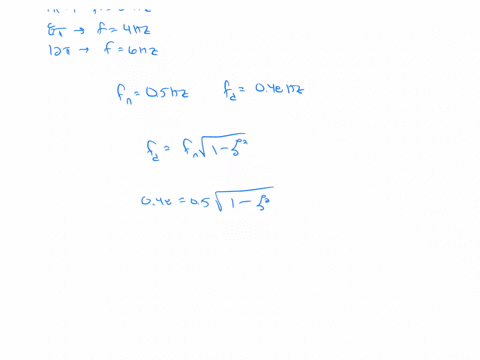 8π → f = 4Hz
12π → f = 6Hz
fₙ = 0.5Hz f_d = 0.48Hz
f_d = fₙ √(1 − ζ²)
0.48 = 0.5 √(1 − ζ²)